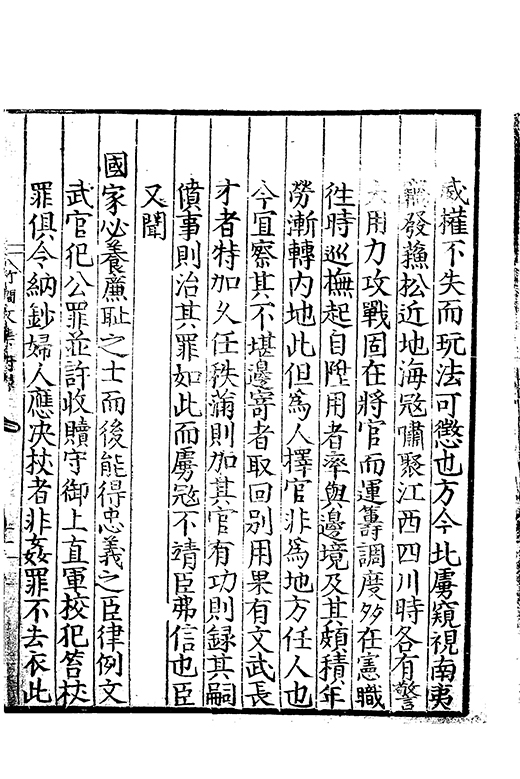 威權不失而玩法可懲也方今北虜窺視南夷
發蘓松近地海冦嘯聚江西四川時各有警
夫用力攻戰固在將官而運籌調度夘在憲職
徃時巡撫起自陞用者率與邊境及其頗積年
勞漸轉内地此但為人擇官非為地方任人也
今宜察其不堪邊寄者取回别用果有文武長
才者特加久任秩蒲則加其官有功則録其嗣
僨事則治其罪如此而虜冦不靖臣弗信也臣
又聞
國家必養廉恥之士而後能得忠義之臣律例文
武官犯公罪並許收贖守御上直軍校犯笞杖
罪俱令納鈔婦人應决杖者非姦罪不去衣此
竹澗文集